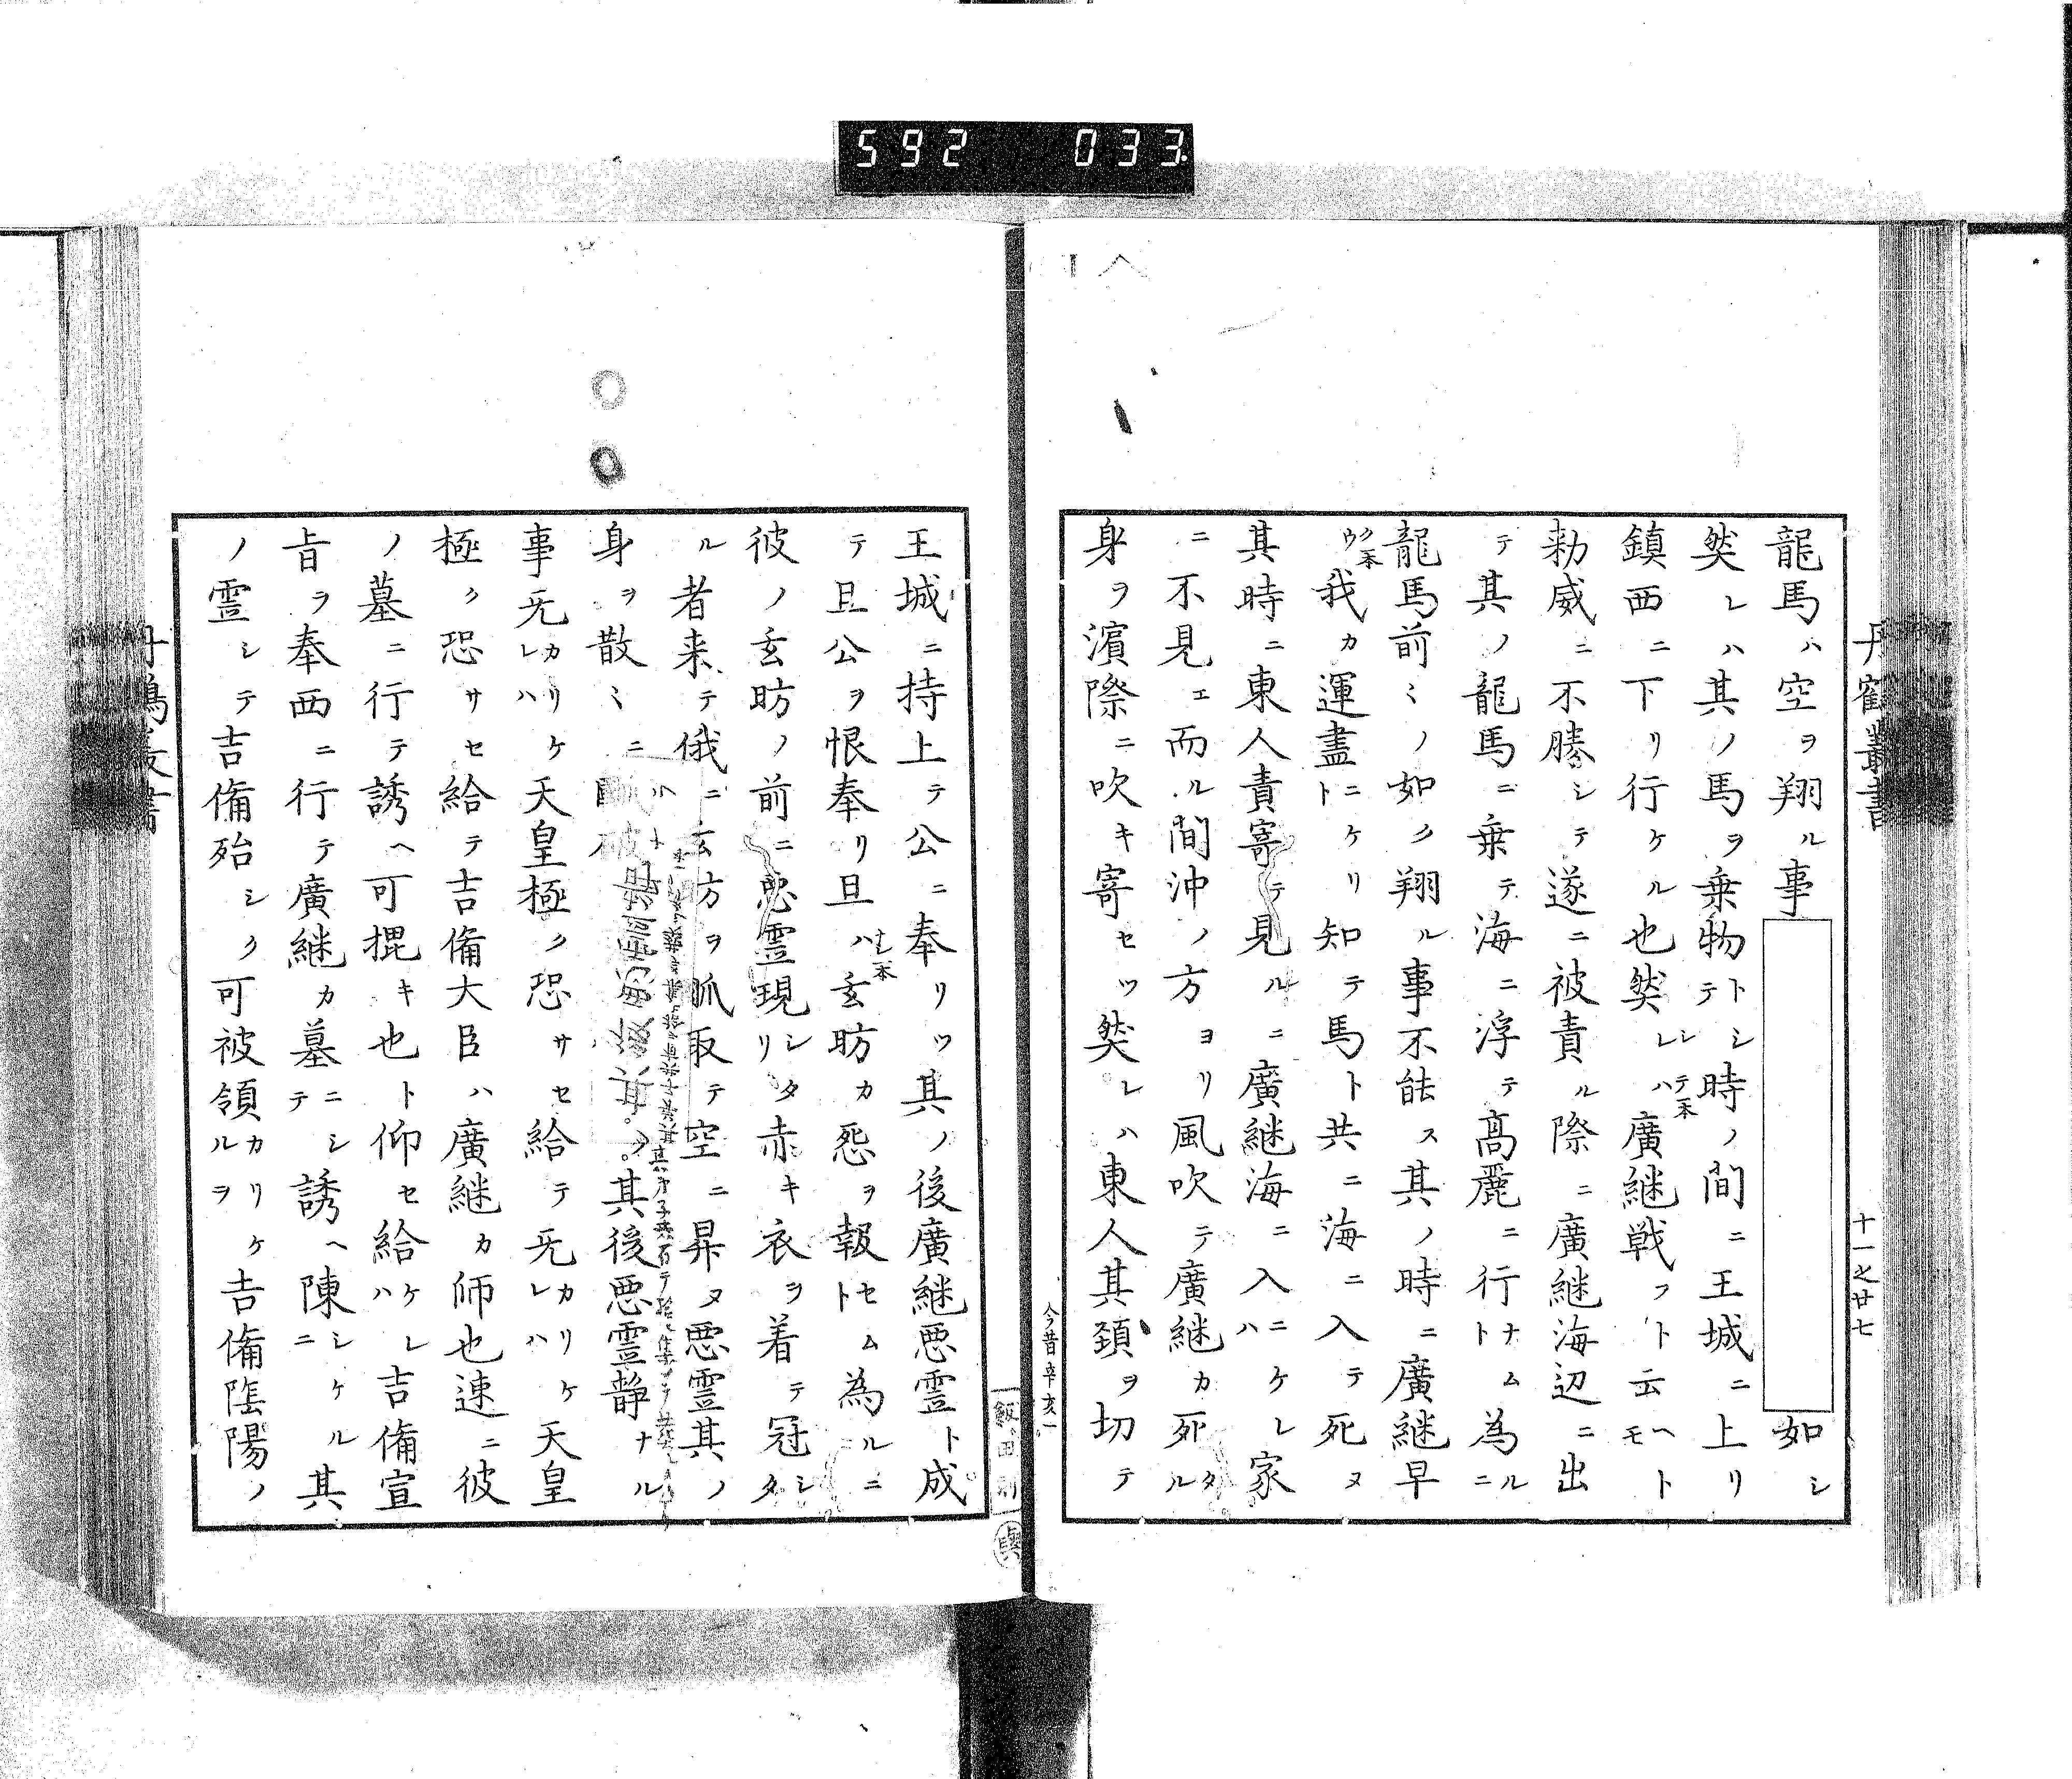 592 033
丹鶴叢書
十一之廿七
龍馬ハ空ヲ翔ル事 如シ
然レハ其ノ馬ヲ乗物トシテ時ノ間ニ王城ニ上リ
鎮西ニ下リ行ケル也然レハシテ本廣継戦フト云ヘトモ
勅威ニ不勝シテ遂ニ被責ル際ニ廣継海辺ニ出
テ其ノ龍馬ニ乗テ海ニ浮テ高麗ニ行ナムト為ルニ
龍馬前〻ノ如ク翔ル事不能ス其ノ時ニ廣継早
ウク本我カ運盡ニケリト知テ馬ト共ニ海ニ入テ死ヌ
其時ニ東人責寄テ見ルニ廣継海ニ入ニケレハ家
ニ不見エ而ル間沖ノ方ヨリ風吹テ廣継カ死タル
身ヲ濱際ニ吹キ寄セツ然レハ東人其頚ヲ切テ
今昔辛亥一
飯田刻
王城ニ持上テ公ニ奉リツ其ノ後廣継悪霊ト成
テ且公ヲ恨奉リ且ハ玄昉カ怨ヲ報セムト為ルニ
彼ノ玄昉ノ前ニ悪霊現シタリ赤キ衣ヲ着テ冠シタ
ル者来テ俄ニ玄方ヲ爴取テ空ニ昇ヌ悪霊其ノ
身ヲ散〻ニ 破 其後悪霊静ナル
事旡カリケレハ天皇極ク恐サセ給テ旡カリケレハ天皇
極ク恐サセ給テ吉備大臣ハ廣継カ師也速ニ彼
ノ墓ニ行テ誘ヘ可掍キ也ト仰セ給ケレハ吉備宣
旨ヲ奉西ニ行テ廣継カ墓ニシテ誘ヘ陳シケルニ其
ノ霊シテ吉備殆シク可被領カリケルヲ吉備陰陽ノ